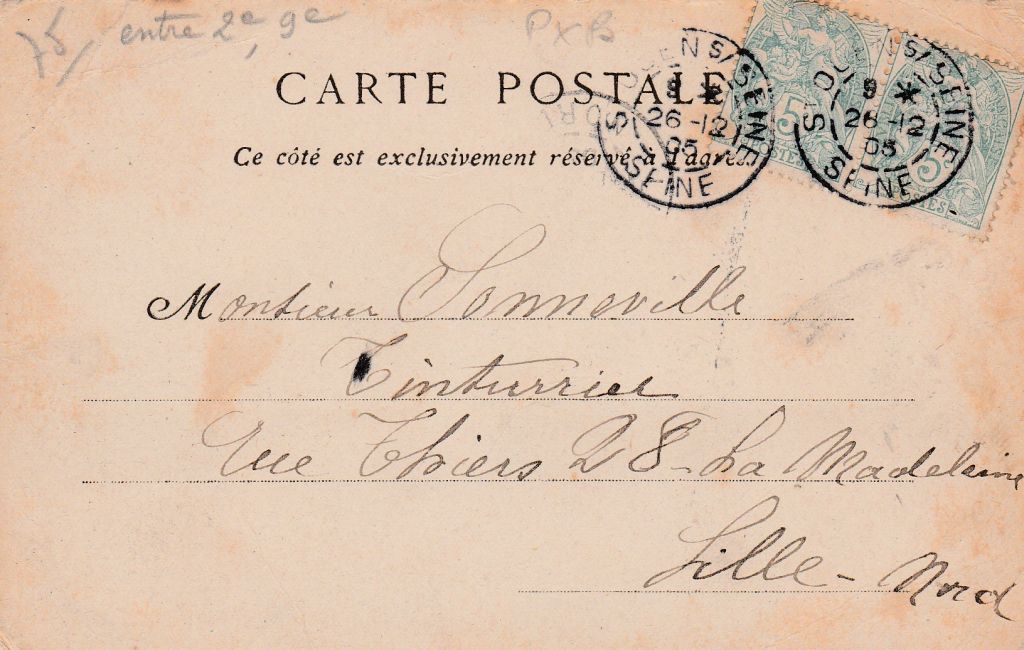 75, entre 2e, 9e
PXB
CARTE POSTALE
Ce côté est exclusivement réservé à l'adres
S/SEINE
9 *
26 -12
05
SEINE
S/SEINE
9 *
26 -12
05
SEINE
5
5
Monsieur Sonneville
Tinturrier
Rue Thiers 28 - La Madelaine
Lille - Nord